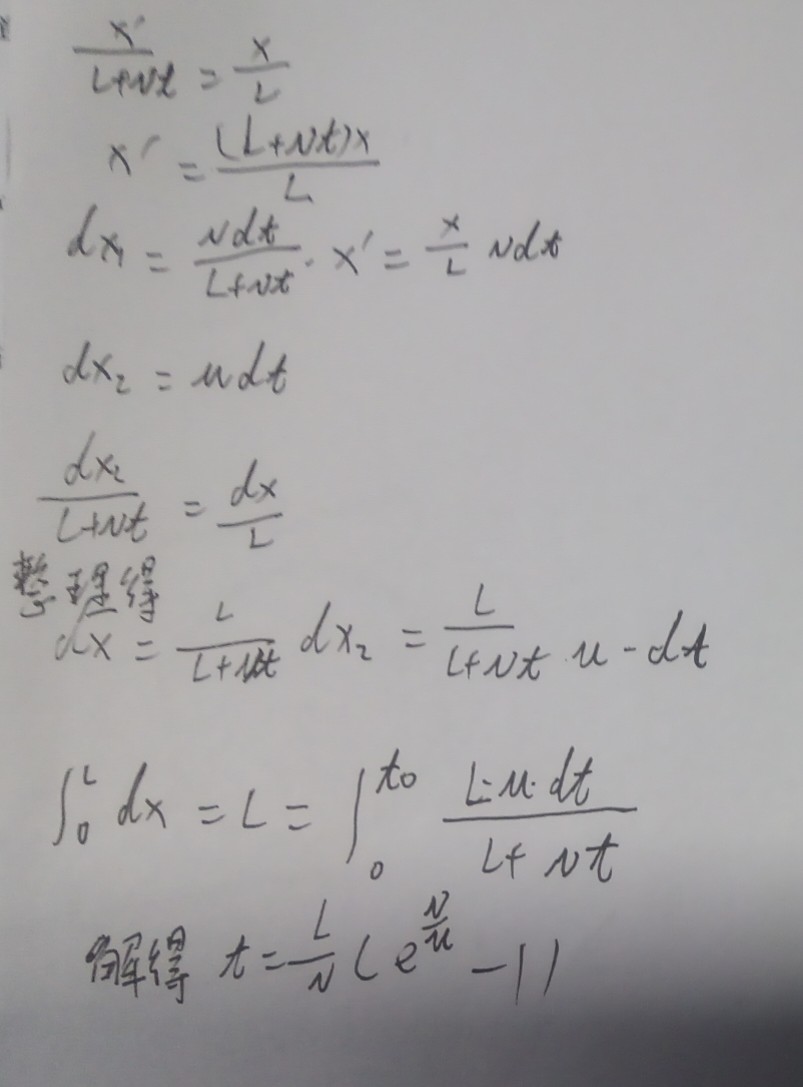 x'/(L+vt) = x/L
x' = (L+vt)x/L
dx₁ = vdt/(L+vt) · x' = x/L vdt
dx₂ = udt
dx₂/(L+vt) = dx/L
整理得
dx = L/(L+vt) dx₂ = L/(L+vt) · u · dt
∫₀ᴸ dx = L = ∫₀^t₀ L·u·dt/(L+vt)
解得 t = L/v (e^(v/u) - 1)